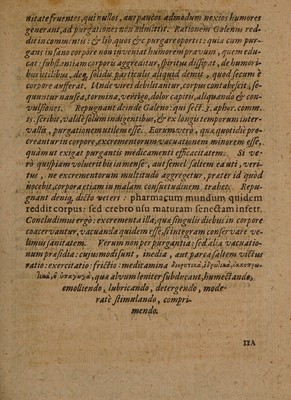 nitate fruentes, qui nullos, aut paucos admodum noxios humores
generant, ad purgationes non admittit. Rationem Galenus red-
dit in comment is: & lib. quos & c. purgare oportet: quia cum pur-
gans in sano corpore non inveniat humorem pravum, quem edu-
cat: substantiam corporis aggreditur, spiritus dissipat, de humori-
bus utilibus, deq, solidu particulis aliquid demit, quod secum è
corpore aufferat. Unde vires debilitantur, corpus contabescit, se-
quuntur nausea, tormina, vertigo, dolor capitis, aliquando & con-
vulsiones. Repugnant deinde Galeno: qui sect. 3. aphor. comm.
scribit, valdè solum indigentibus, & ex longis temporum inter-
vallis, purgationem utilem esse. Eorum verò, qua quotidiè pro-
creantur in corpore, excrementorum vacuationem minorem esse,
quàm ut exigat purgantis medicamenti efficacitatem. Si ve-
rò quispiam voluerit bis in mense, aut semel saltem ea uti, veri-
tus, ne excrementorum multitudo aggregetur, præter id quòd
nocebit, corpora etiam in malam consuetudinem trahet. Repu-
gnant deniq, dicto veteri: pharmacum mundum quidem
reddit corpus: sed crebro usu maturam senectam infert.
Concludimus ergo: excrementa illa, quæ singulis diebus in corpore
coacervantur, vacuanda quidem esse, si integram conservare ve-
limus sanitatem. Verum non per purgantia: sed alia vacuatio-
num præsidia: cujusmodi sunt, inedia, aut parca saltem victus
ratio: exercitatio: frictio: medicamina διουρητικὰ, ἱδρωτικὰ,
qua alvum leniter subducant, humectando,
emolliendo, lubricando, detergendo, mode-
ratè stimulando, compri-
mendo.